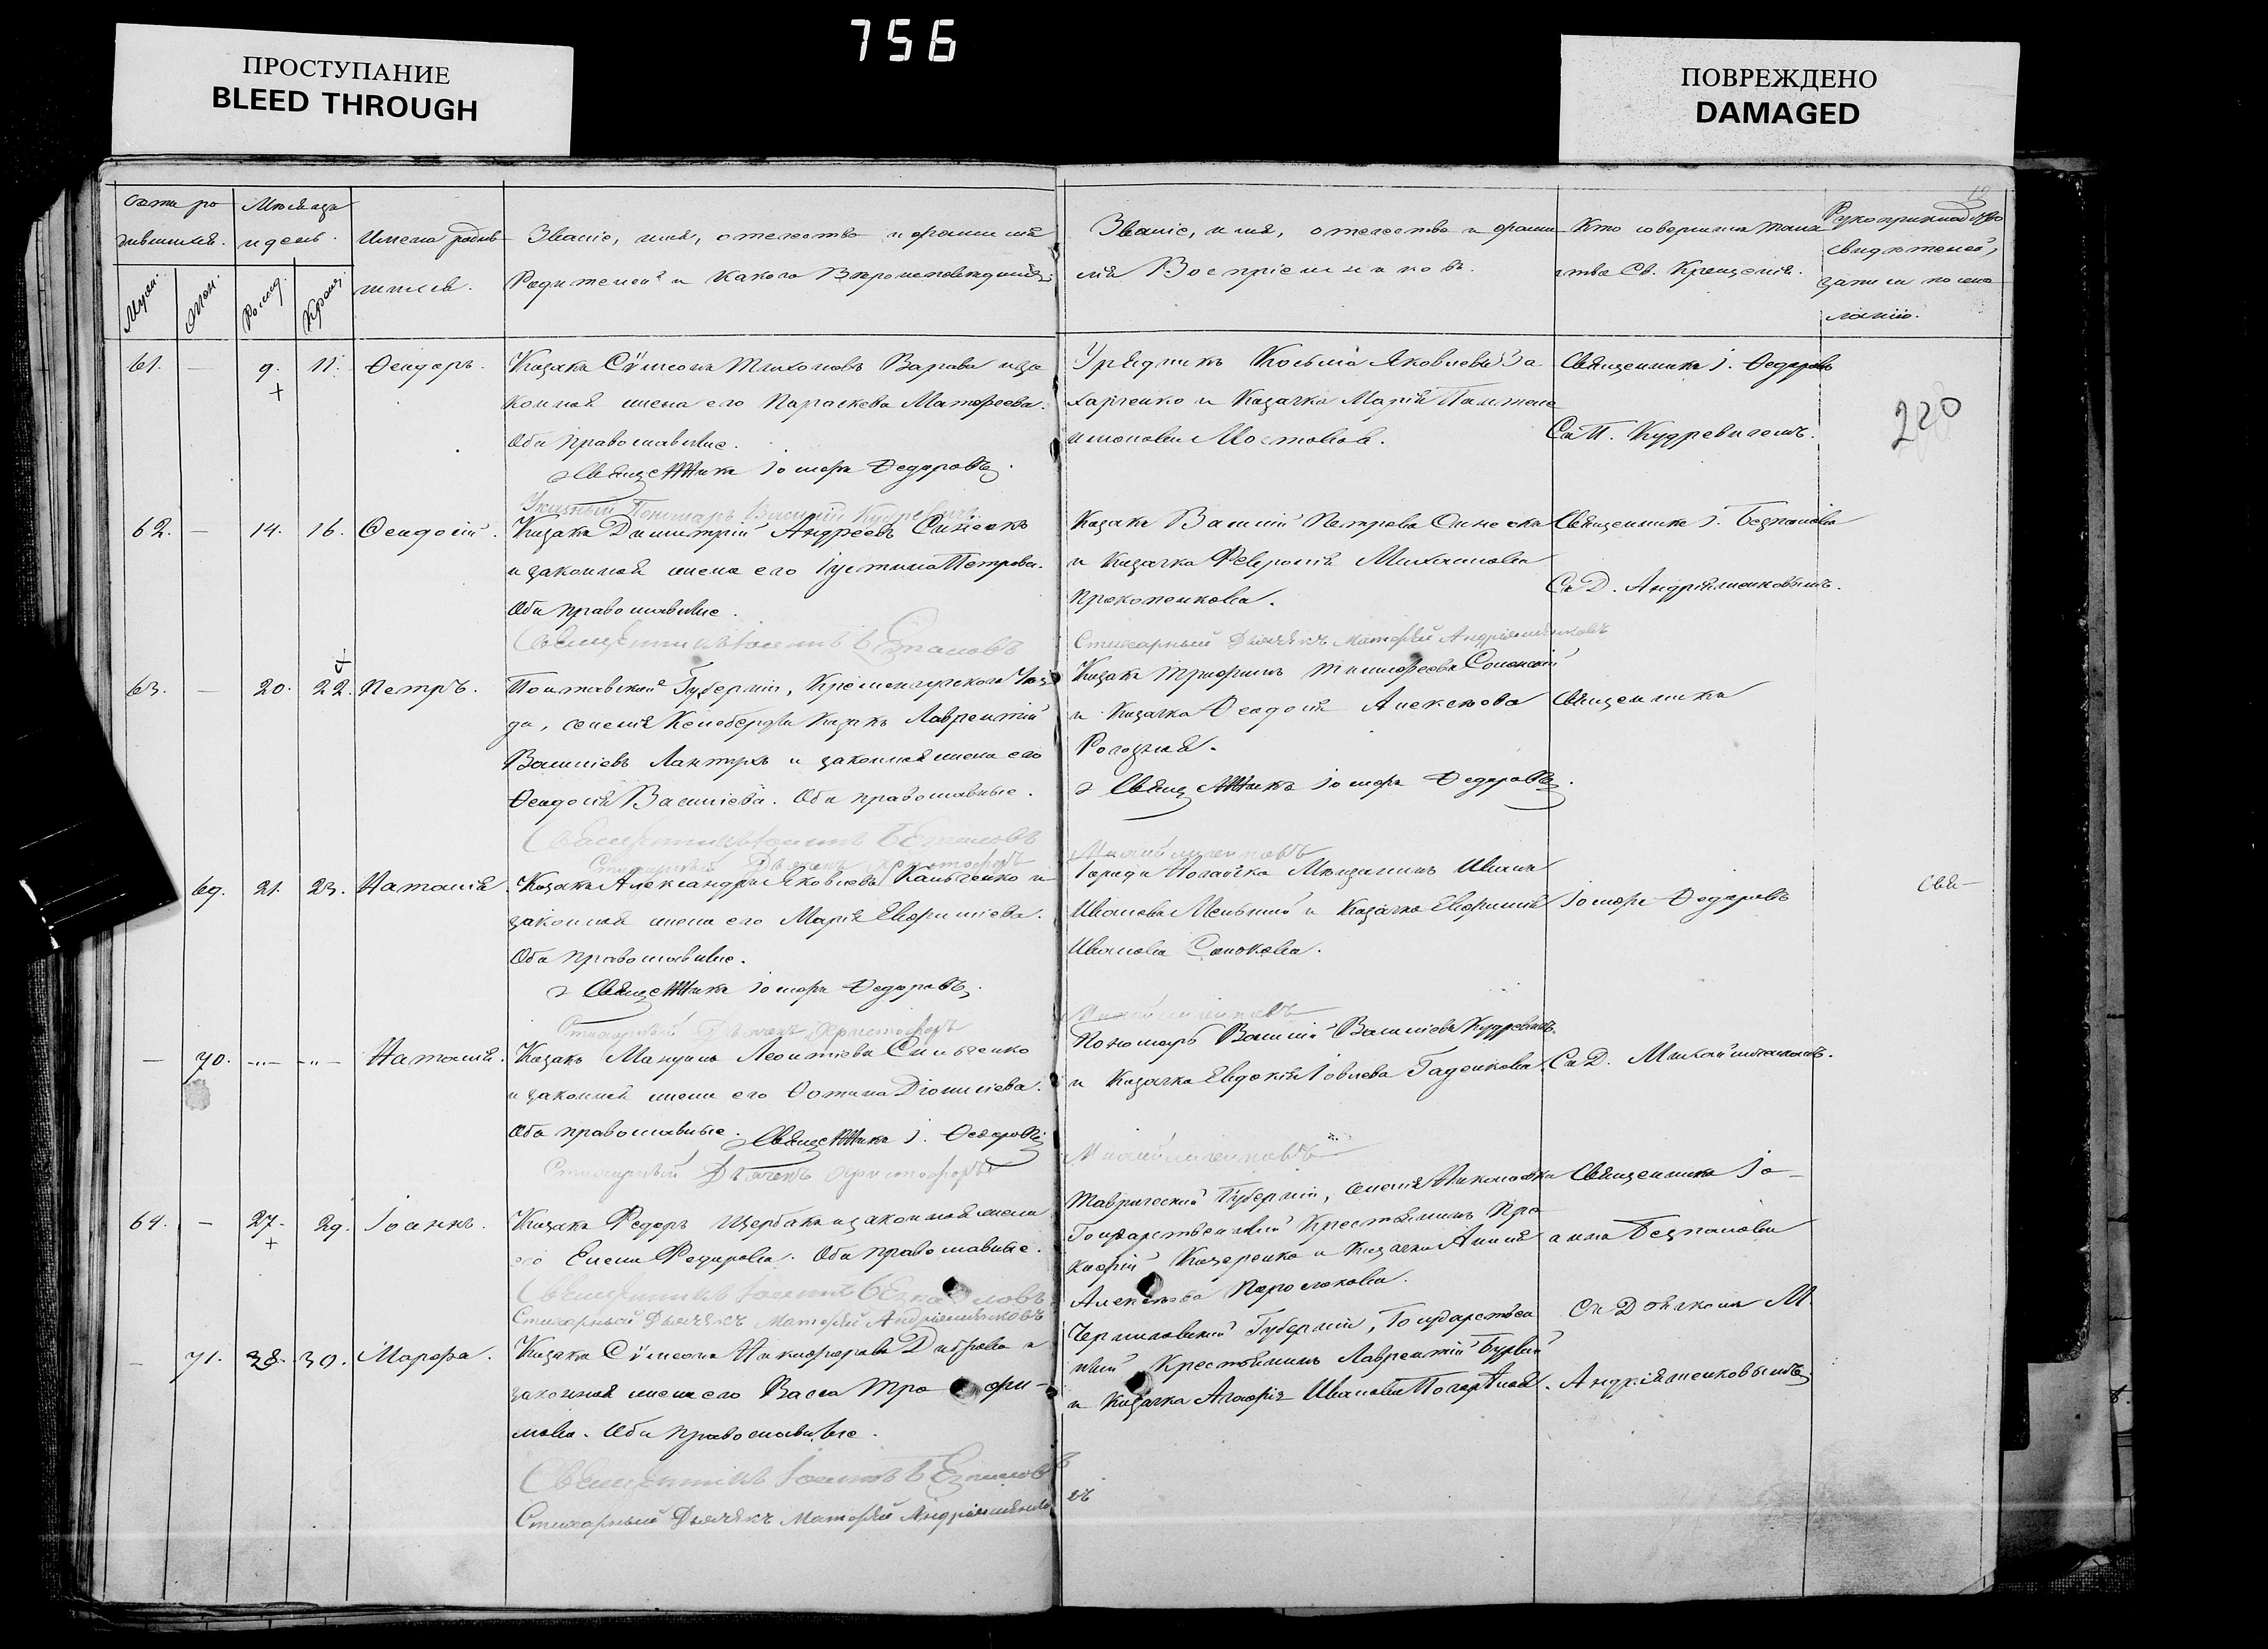 756
ПРОСТУПАНИЕ
BLEED THROUGH
ПОВРЕЖДЕНО
DAMAGED
Мѣсяцъ
и день.
Имена родив
шихся.
Званіе, имя, отечество и фамилія
Родителей и какого Вѣроисповѣданія.
Званіе, имя, отечество и фами
лія Воспріемниковъ.
Кто совершалъ таин
ства Св. Крещенія.
свидѣтелей,
ланію.
61. — 9. 11. Ѳеодоръ.
Козакъ Сѵмеонъ Тихоновъ Варава и за
конная жена его Параскева Матѳеева.
Оба православные.
Священникъ Іосифъ Ѳедоровъ
Указный Пономаръ Василій Кудревичъ
Урядникъ Косьма Яковлевъ За
харченко и Козачка Марія Пантеле
имонова Мостовая.
Священникъ І. Ѳедоровъ
Съ П. Кудревичемъ.
220
62. — 14. 16. Ѳеодосій.
Козакъ Димитрій Андреевъ Синеокъ
и законная жена его Іустина Петрова.
Оба православные.
Священникъ Іоаннъ Безпаловъ
Козакъ Василій Петровъ Синеокъ
и Козачка Февронія Михайлова
Прокопенкова.
Стихарный Дьячекъ Матѳей Андріяшенковъ
Священникъ І. Безпаловъ
Съ Д. Андріяшенковымъ.
63. — 20. 22. Петръ.
Полтавской Губерніи, Кременчугскаго Уѣз
да, селенія Келеберды Козакъ Лаврентій
Василіевъ Лантухъ и законная жена его
Ѳеодосія Василіева. Оба православные.
Священникъ Іоаннъ Безпаловъ
Стихарный Дьячекъ Христофоръ
Козакъ Трифонъ Тимофеевъ
и Козачка Ѳеодосія Алексѣева
Рогозная.
Священникъ Іосифъ Ѳедоровъ.
Михайличенковъ
Священникъ
69. 21. 23. Наталія.
Козакъ Александръ Яковлевъ Кальченко и
законная жена его Марія Евфиміева.
Оба православные.
Священникъ Іосифъ Ѳедоровъ.
Стихарный Дьячекъ Христофоръ
Города Ногайска Мѣщанинъ Иванъ
Ивановъ Меньшій и Козачка Евфимія
Иванова Сопокова.
Михайличенковъ
Іосифъ Ѳедоровъ
Свя—
— 70. Наталія.
Козакъ Мануилъ Леонтіевъ Сильченко
и законная жена его Іустина Діонисіева.
Оба православные. Священникъ І. Ѳедоровъ
Стихарный Дьячекъ Христофоръ
Пономарь Василій Василіевъ Кудревичъ
и Козачка Евдокія Іовлева Гаденкова.
Михайличенковъ
Съ Д. Михайличенкомъ.
64. — 27. 29. Іоаннъ.
Козакъ Федоръ Щербакъ и законная жена
его Елена Федорова. Оба православные.
Священникъ Іоаннъ Безпаловъ
Стихарный Дьячекъ Матѳей Андріяшенковъ
Таврической Губерніи, селенія
Государственный Крестьянинъ Про
кофій Козеренко и Козачка Анна
Алексѣева
Священникъ Іо—
аннъ Безпаловъ
— 71. 28. 30. Марфа.
Козакъ Сѵмеонъ Никифоровъ Диброва и
законная жена его Васса Трофи—
мова. Оба православные.
Священникъ Іоаннъ Безпаловъ
Стихарный Дьячекъ Матѳей Андріяшенко
въ
Черниговской Губерніи, Государствен
ный Крестьянинъ Лаврентій Бурый
и Козачка Агафія Иванова
Съ Дьякомъ М.
Андріяшенковымъ